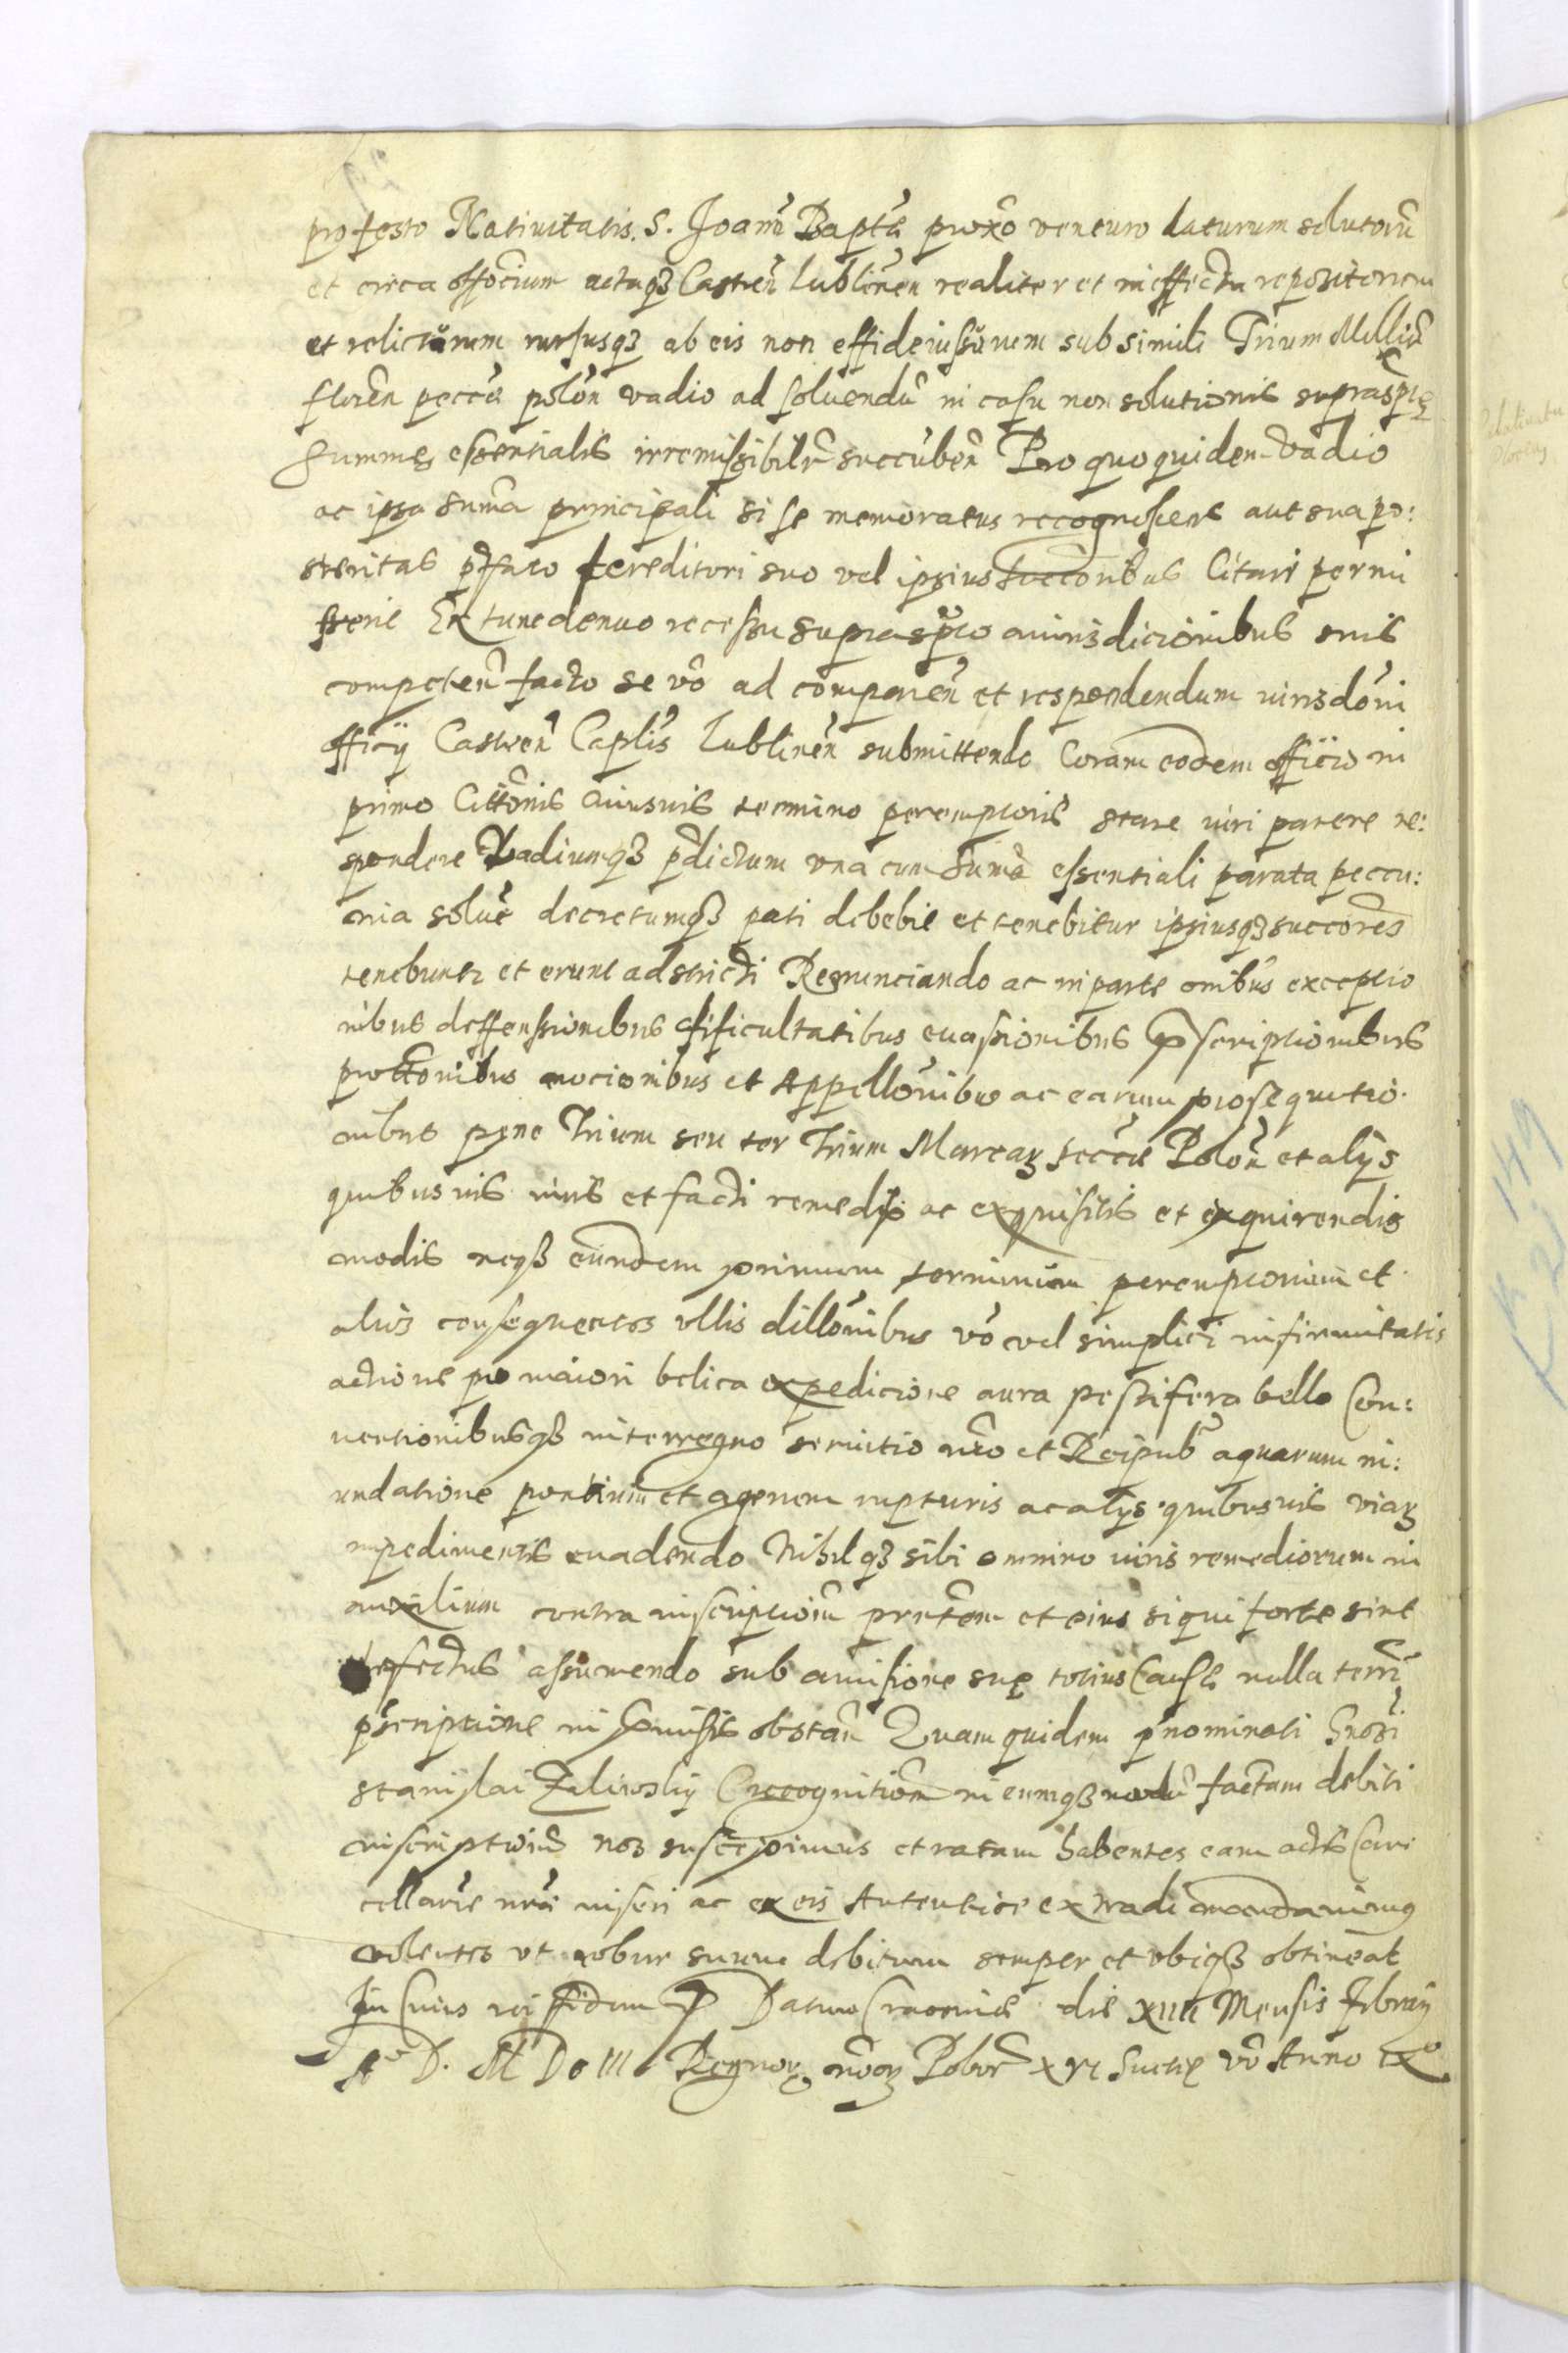 pro festo Natiuitatis S. Joann Baptæ proxo venturo daturum soluturū
et circa officium actaqз Castren Lublinen realiter et in effectu repositurum
et relicturum rursusqз ab eis non effideiussurum sub simili Trium Milliū
floren peccū polon vadio ad soluendū in casu non solutionis suprasptę
Summę essentialis irremissibilr succuben Pro quo quidem vadio
ac ipsa suma principali si se memoratus recognoscens aut sua po:
steritas pfato creditori suo vel ipsius succoribus Citari permi
serit Ex tunc denuo recessu suprasptо a iurisdicionibus suis
competen facto se vō ad comparen et respondendum iurisdōni
officÿ Castren Caplis Lublinen submittendo Coram eodem officio in
primo Cittōnis cuiusuis termino peremptorie stare iuri parere re:
spondere Vadiumqз pdictum vna cum suma essentiali parata peccu:
nia soluē decretumqз pati debebit et tenebitur ipsiusqз succores
tenebuntr et erunt adstricti Renunciando ac in parte omibus exceptio
nibus deffensionibus dificultatibus euassionibus pscriptionibus
prottōnibus mocionibus et Appellōnibus ac earum prosequutio
nibus pene Trium seu ter Trium Marcaз peccū Polon et alÿs
quibusuis iuris et facti remedÿs ac exquisitis et exquirendis
modis neqз eundem primum terminum peremptorium et
alios consequentes vllis dillōnibus vō vel simplici infirmitatis
actione pro maiori belica expedicione aura pestifera bello Con:
uentionibusqз interregno seruitio nro et Reipub aquarum in:
undatione pontium et agerum rupturis ac alÿs quibusuis viaз
impedimentis euadendo Nihilqз sibi omnino iuris remediorum in
auxilium contra inscriptioem prntem et eius si qui forte sint
defectus assumendo sub amissione suę totius Causę nulla terr
pscriptione in pmissis obstan Quam quidem pnominati Gnosi
Stanislai Zelinsky recognitiōm in eumqз modū factam debiti
inscriptiōis nos suscepimus et ratam habentes eam actis Can
cellariæ nræ inseri ac ex eis Autentice extradi mandauimus
volentes vt robur suum debitum semper et vbiqз obtineat
In Cuius rei fidem p Datum Cracouiæ die XIIII Mensis Febrarÿ
Ao D. M Dc III Regnoз nroз Polo XVI Suetię vō Anno IXo